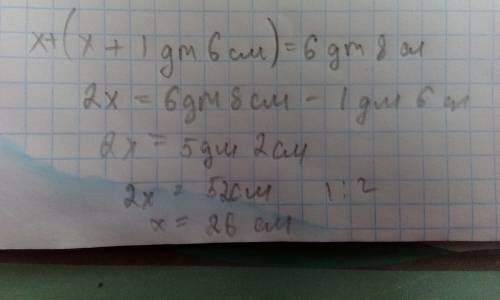 x+(x + 1 дm 6 см) = 6 дm 8 см
2x = 6дm 8см - 1 дм 6 см
2x = 5дм 2см
2x = 52см 1:2
x = 26 см